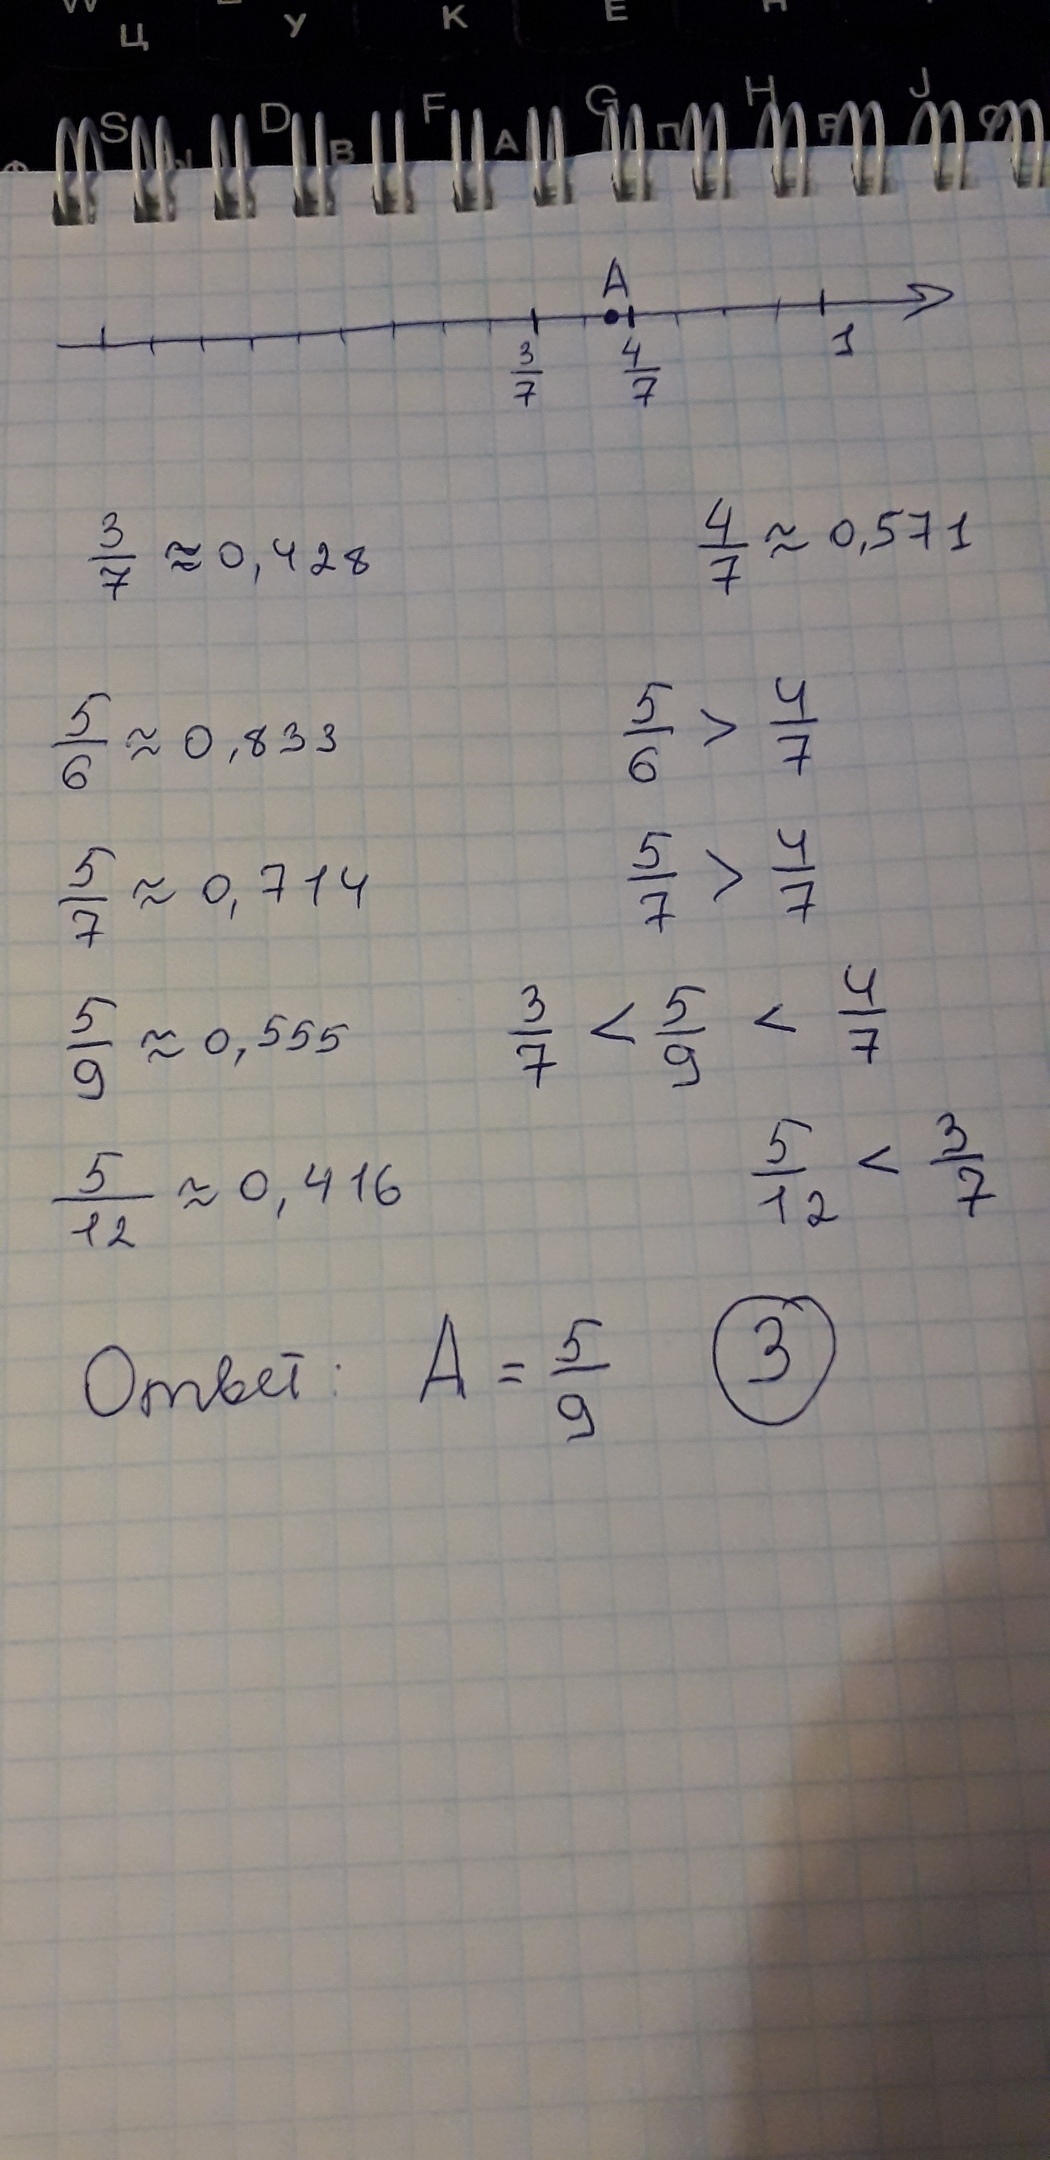 Ц У К Е
S D F G H J
В А П Р
A
3/7 4/7 1
3/7 ≈ 0,428 4/7 ≈ 0,571
5/6 ≈ 0,833 5/6 > 4/7
5/7 ≈ 0,714 5/7 > 4/7
5/9 ≈ 0,555 3/7 < 5/9 < 4/7
5/12 ≈ 0,416 5/12 < 3/7
Ответ: A = 5/9 3